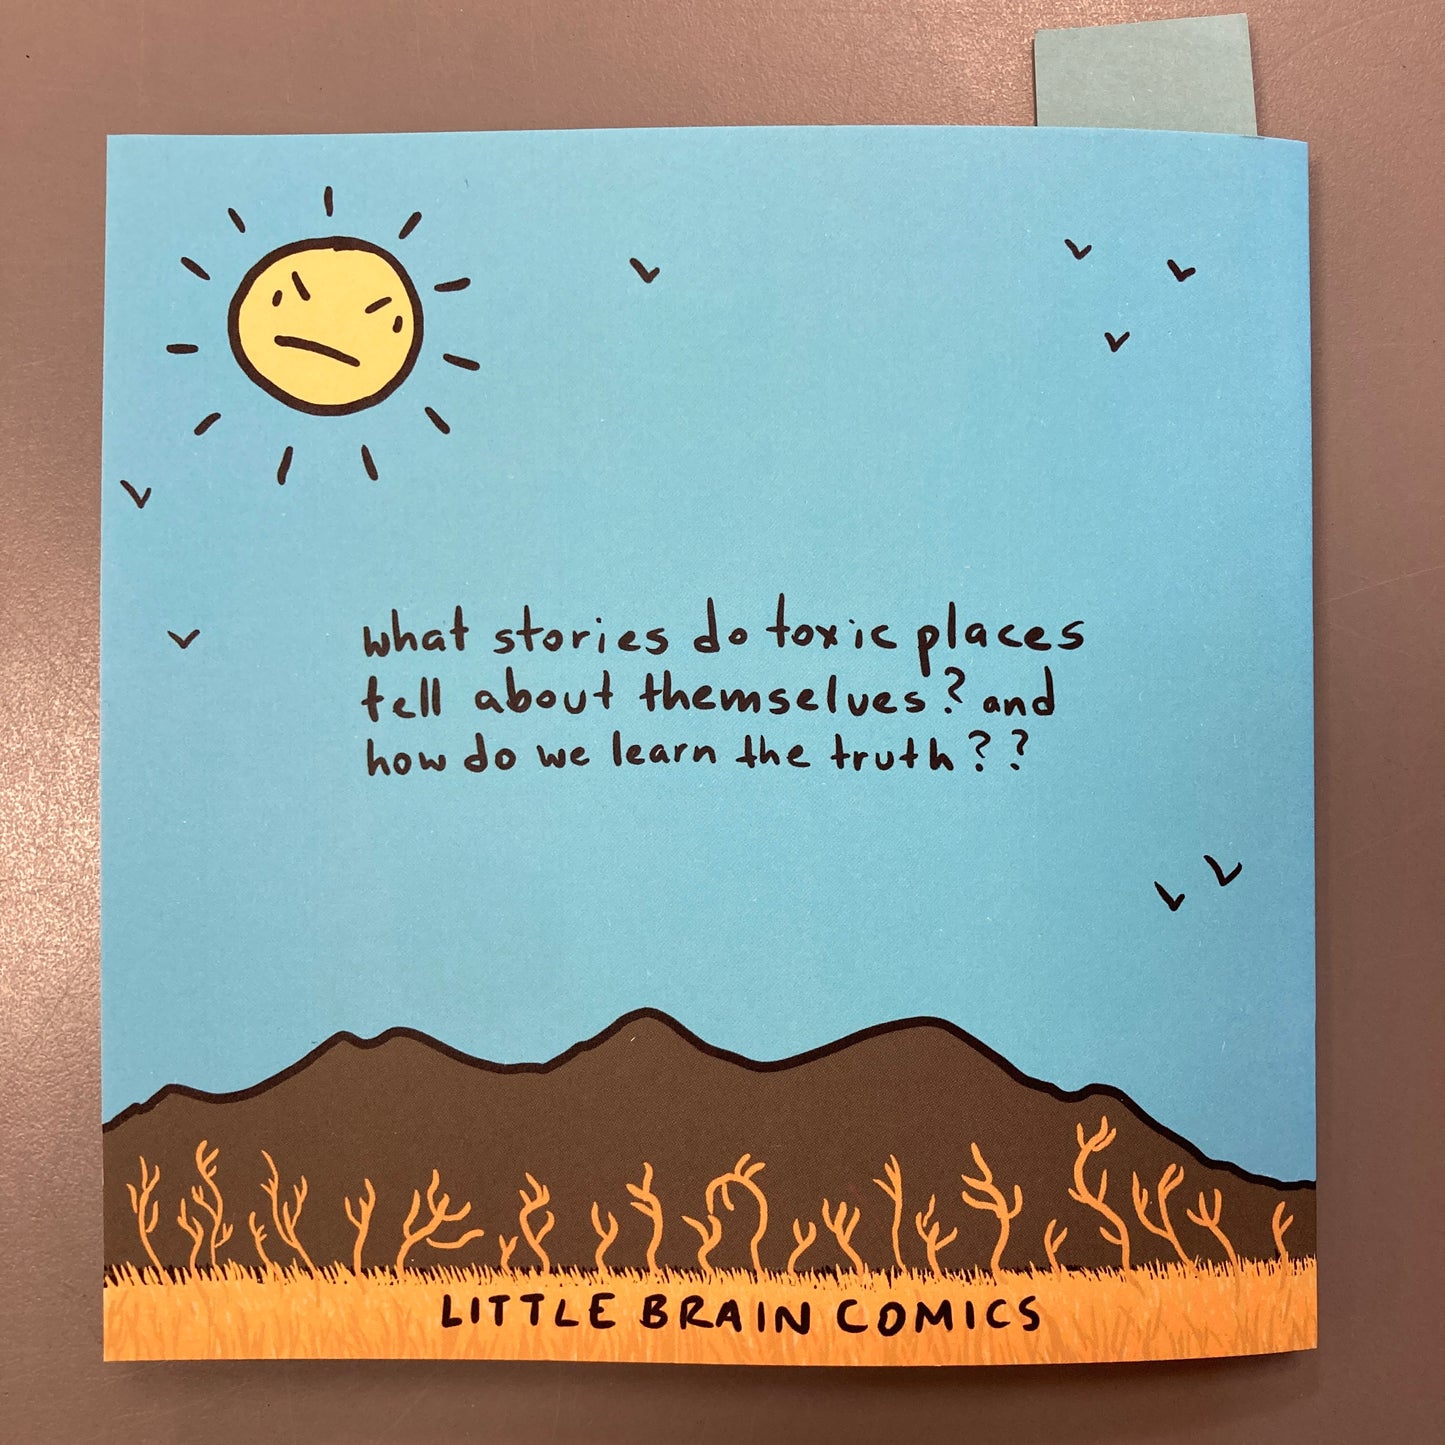 what stories do toxic places
tell about themselves? and
how do we learn the truth??
LITTLE BRAIN COMICS